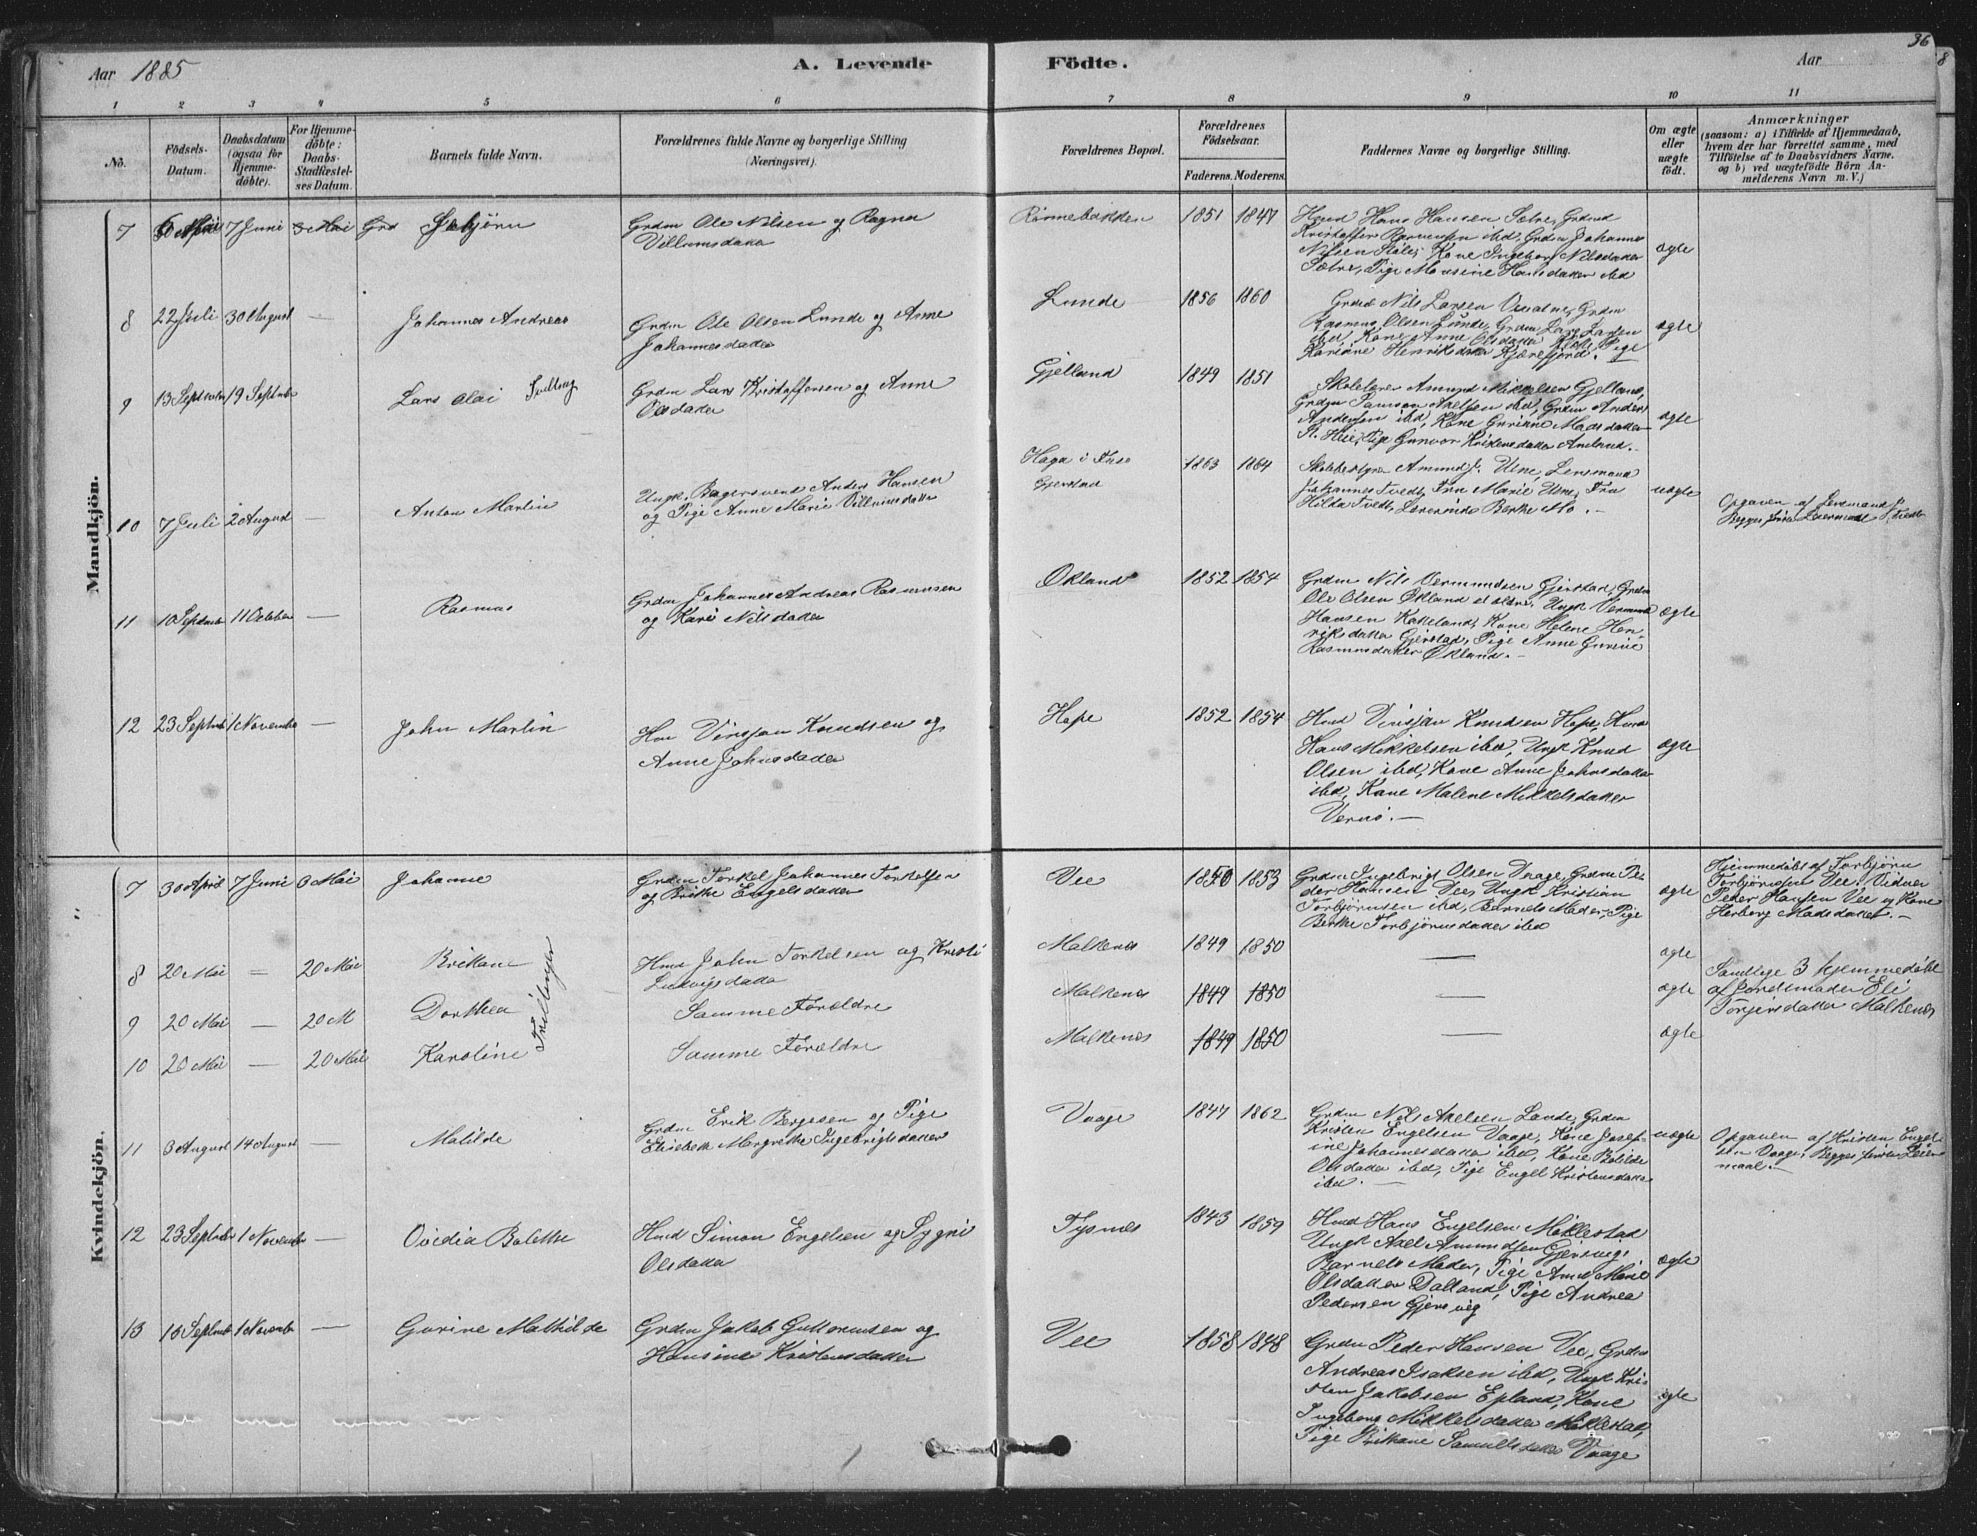 36
Aar 1885
A. Levende Födte.
Aar
1 2 3 4 5 6 7 8 9 10 11
No.
Födsels-Datum.
Daabsdatum (ogsaa for Hjemmedöbte).
For Hjemmedöbte: Daabs-Stadfæstelses Datum.
Barnets fulde Navn.
Forældrenes fulde Navne og borgerlige Stilling (Næringsvei).
Forældrenes Bopæl.
Forældrenes Födselsaar.
Faderens. Moderens.
Faddernes Navne og borgerlige Stilling.
Om ægte eller uægte födt.
Anmærkninger
(saasom: a) i Tilfælde af Hjemmedaab, hvem der har forrettet samme, med Tilföielse af to Daabsvidners Navne, og b) ved uægtefödte Börn Anmelderens Navn m. V.)
Mandkjön.
7 7 Juni
Grdm Ole Nilsen og Ragna
Villumsdatter
1851 1847
Knud Hans Hansen Sætre, Grdm
Kristoffer Rasmussen ibd, Grdm Johannes
Nilsen Støle, Kone Ingeborg Nilsdatter
Sætre, Pige Monsine Hansdatter ibd
ægte
8 22 Juli 30 August —
Johannes Andreas
Grdm Ole Olsen Lunde og Anne
Johannesdatter
Lunde 1856 1860
Nils Larsen
Rasmus Olsen Lunde, Grdm Lars Larsen
ibd, Kone Anne Olsdatter
Henriksdatter Kjærefjord.
ægte
9 13 September 19 September
Lars Olai
Grdm Lars Kristoffersen og Anne
Olsdatter
Gjelland 1849 1851
Skolelærer Amund Mikkelsen Gjelland,
Grdm Samson Axelsen ibd, Grdm Anders
Andersen ibd, Kone Gurine Madsdatter
Pige Gunvor Kristensdatter
ægte
10 7 Juli 2 August —
Anton Martin
Ungk. Bagersvend Anders Hansen
og Pige Anne Marie Villumsdatter
Haga i Fuse
Gjerstad
1863 1864
Skolebestyrer Amund J. Utne, Lensmand
Johannes Tvedt, Fru Marie Utne, Fru
Hilda Tvedt, Lærerinde Berthe Mo. —
uægte
Opgaven af Lensmand J. Tvedt
Begges første Leiermaal
11 10 September 11 October —
Rasmus
Grdm Johannes Andreas Rasmussen
og Kari Nilsdatter
Økland 1852 1854
Grdm Nils Vermundsen Gjerstad, Grdm
Ole Olsen Økland el. ældre, Ungk Vermund
Hansen Kakeland, Kone Helene Hen-
riksdatter Gjerstad, Pige Anne Gurine
Rasmusdatter Økland. —
ægte
12 23 Septemb 1 November —
John Martin
Hm Vinsjan Knudsen og
Anne Johnsdatter
Hope 1852 1854
Hmd Vinsjan Knudsen Hope, Hmd
Hans Mikkelsen ibd, Ungk Knud
Olsen ibd, Kone Anne Johnsdatter
ibd, Kone Malene Mikkelsdatter
Vernø. —
ægte
„
Kvindekjön.
7 30 April 7 Juni 3 Mai
Johanne
Grdm Torkel Johannes Torkelsen
og Brithe Engelsdatter
Vee 1850 1853
Grdm Ingebrigt Olsen Vaage, Grdm Pe-
der Hansen Vee, Ungk Kristian
Torbjørnsen ibd, Barnets Moder, Pige
Berthe Torbjørnsdatter ibd
ægte
Hjemmedøbt af Torbjørn
Torbjørnsen Vee. Vidner
Peder Hansen Vee og Kone
Herborg Madsdatter. —
8 20 Mai — 20 Mai
Brithane
Trillinger
Hmd John Torkelsen og Kristi
Ludvigsdatter
Malkenes 1849 1850 — ægte
Samtlige 3 hjemmedøbt
af Jordemoder Eli
Torjersdatter Malkenes
9 20 Mai — 20 M
Dorthea
Samme Forældre
Malkenes 1849 1850 — ægte
10 20 Mai — 20 Mai
Karoline
Samme Forældre
Malkenes 1849 1850 — ægte
11 3 August 14 August —
Matilde
Grdm Erik Bergesen og Pige
Elisabeth Margrethe Ingebrigtsdatter
Vaage 1847 1862
Grdm Nils Axelsen Lande, Grdm
Kristen Engelsen Vaage, Kone Josef-
ine Johannesdatter ibd, Kone Botilde
Olsdatter ibd, Pige Engel Kristensdatter
ibd. —
uægte
Opgaven af Kristen Engel-
sen Vaage, Begges første Leier-
maal. —
12 23 Septembr 1 November —
Ovidia Bolette
Hmd Simon Engelsen og Sygni
Olsdatter
Tysnes 1843 1859
Hmd Hans Engelsen Miklestad
Ungk Axel Amundsen Gjersvig,
Barnets Moder, Pige Anne Marie
Olsdatter Dalland, Pige Andrea
Pedersen Gjersvig
ægte
13 15 Septemb 1 Novemb —
Gurine Mathilde
Grdm Jakob Guttormsen og
Hansine Kristensdatter
Vee 1858 1848
Grdm Peder Hansen Vee, Grdm
Andreas Isaksen ibd, Ungk Kri-
sten Jakobsen Epland, Kone
Ingeborg Mikkelsdatter Miklestad,
Pige Brithane Samuelsdatter Vaage
ægte